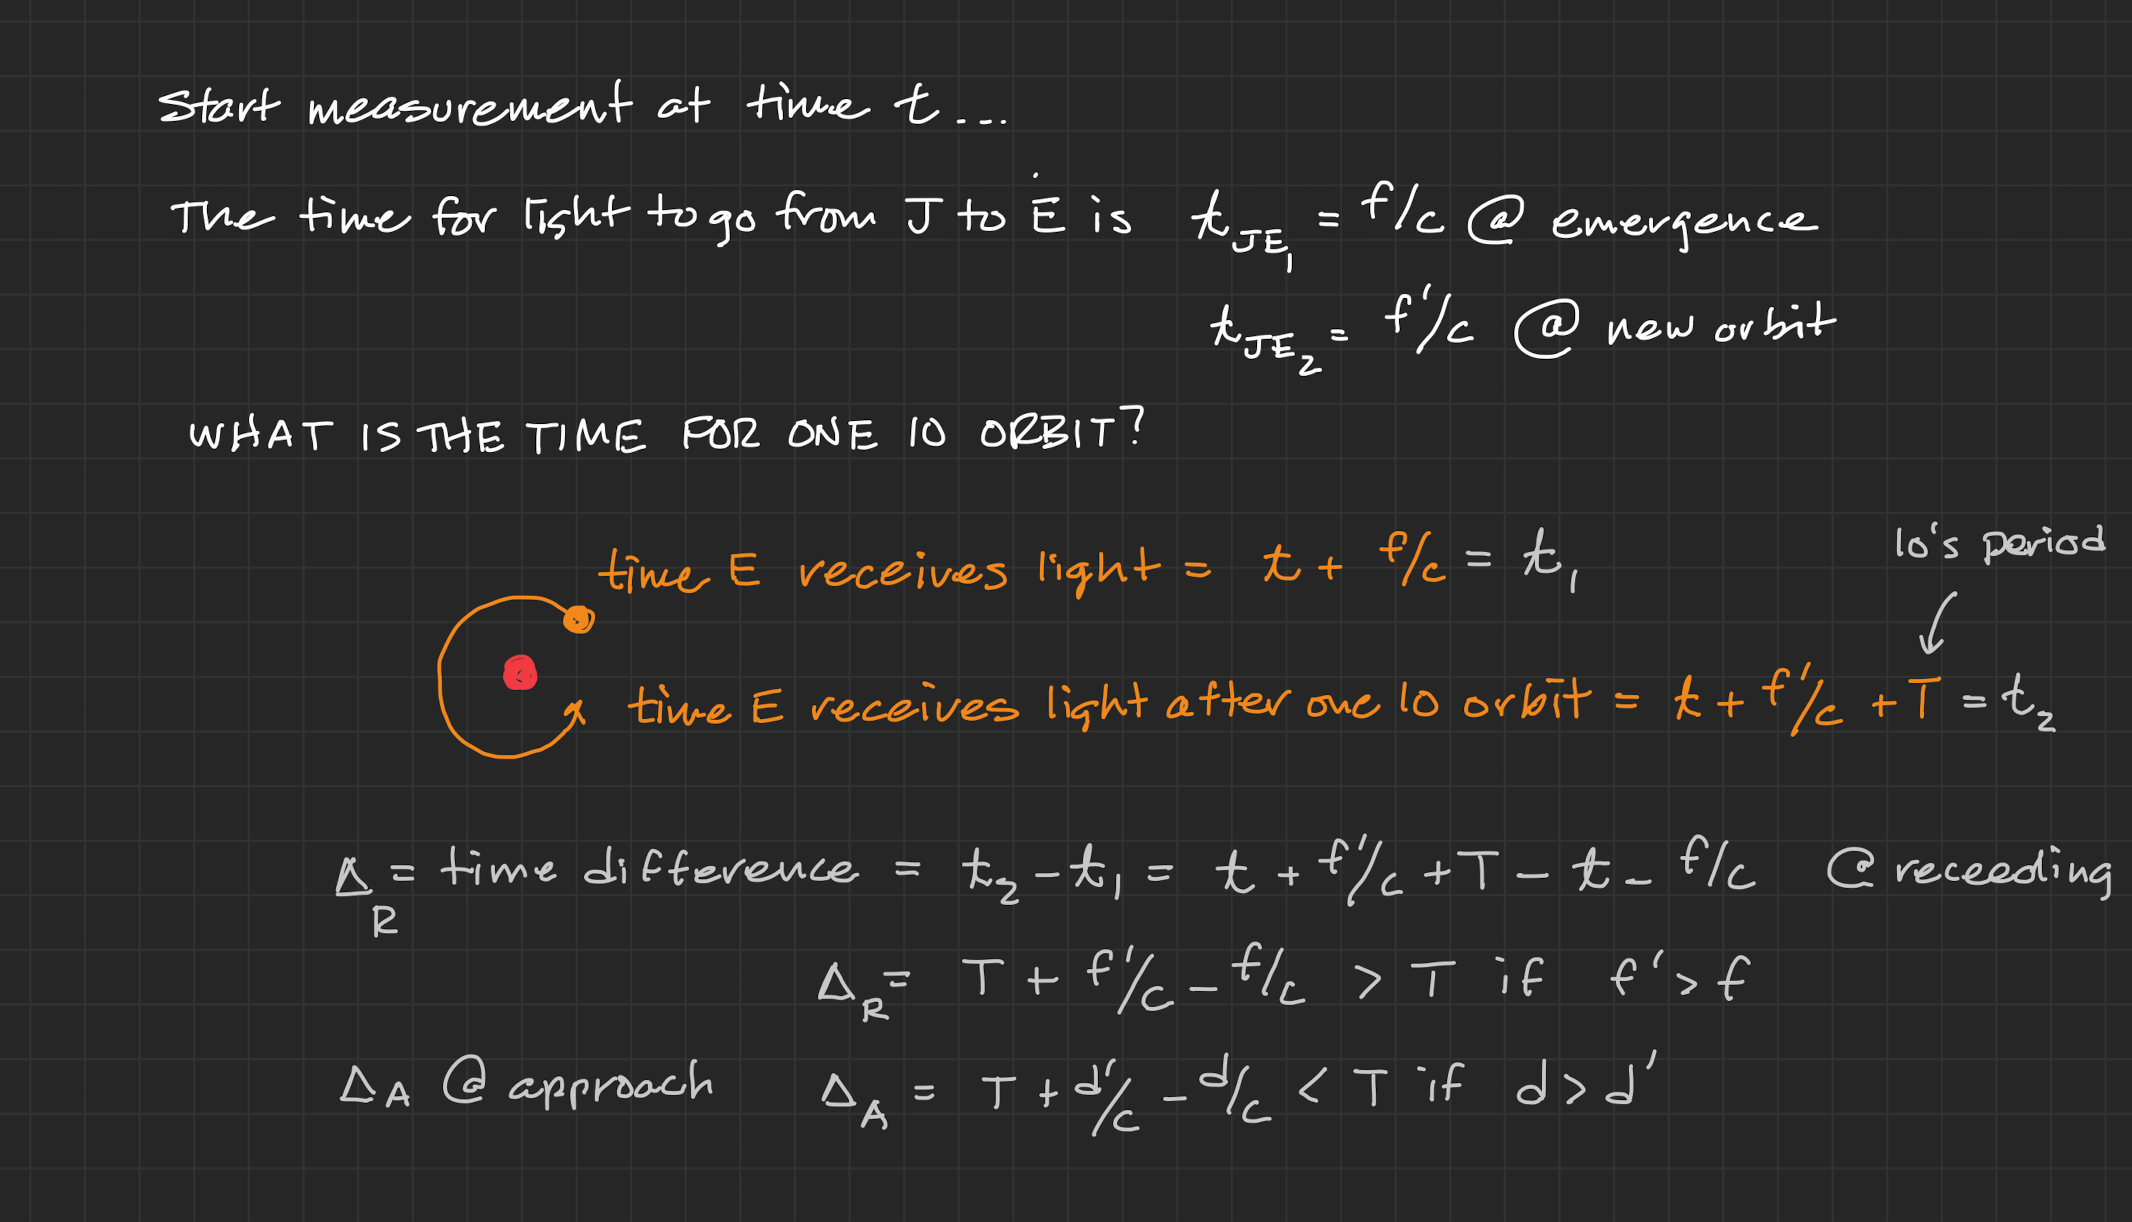 Start measurement at time t...
The time for light to go from J to E is t_JE₁ = f/c @ emergence
t_JE₂ = f'/c @ new orbit
WHAT IS THE TIME FOR ONE IO ORBIT?
Io's period
time E receives light = t + f/c = t₁
time E receives light after one IO orbit = t + f'/c + T = t₂
Δ_R = time difference = t₂ - t₁ = t + f'/c + T - t - f/c @ receeding
Δ_R = T + f'/c - f/c > T if f' > f
Δ_A @ approach Δ_A = T + d'/c - d/c < T if d > d'